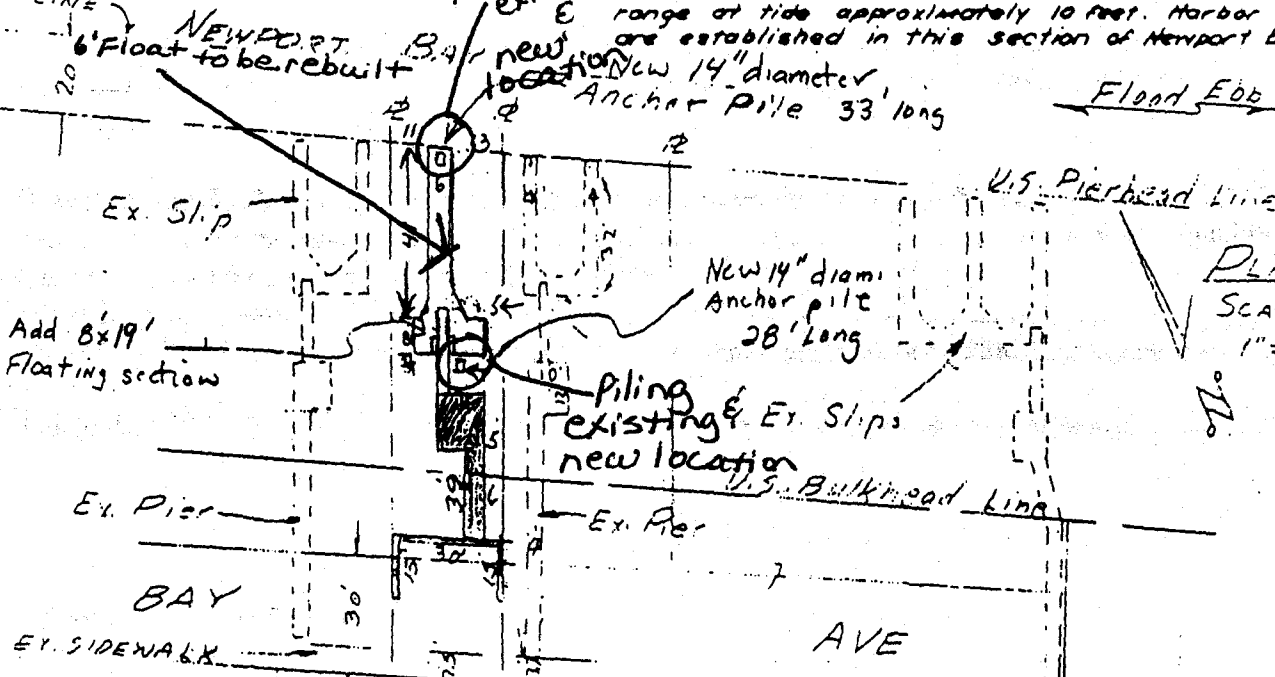 range at tide approximately 10 feet. Harbor
are established in this section of Newport
NEWPORT
6' Float to be rebuilt
new
location
New 14" diameter
Anchor Pile 33' long
Flood Ebb
20
11
3
6
Ex. Slip
U.S. Pierhead Line
32
New 14" diam.
Anchor pile
28' Long
5
Add 8'x19'
Floating section
Piling
existing &
new location
Ex. Slips
5
6
U.S. Bulkhead Line
Ex. Pier
Ex. Pier
30
7
BAY
30'
AVE
EX. SIDEWALK